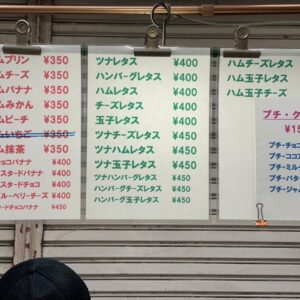 ムプリン ¥350
ムチーズ ¥350
ムバナナ ¥350
ムみかん ¥350
ムピーチ ¥350
ムいちご ¥350
ム抹茶 ¥350
チョコバナナ ¥400
スタードバナナ ¥400
スタードチョコ ¥400
ルーベリーチーズ ¥400
タードチョコバナナ ¥450
ツナレタス ¥400
ハンバーグレタス ¥400
ハムレタス ¥400
チーズレタス ¥400
玉子レタス ¥400
ツナチーズレタス ¥450
ツナハムレタス ¥450
ツナ玉子レタス ¥450
ツナハンバーグレタス ¥450
ハンバーグチーズレタス ¥450
ハンバーグ玉子レタス ¥450
ハムチーズレタス
ハム玉子レタス
ハム玉子チーズ
プチ・ク
¥1
プチ・チョコ
プチ・ココア
プチ・ミル
プチ・バタ
プチ・ジャ